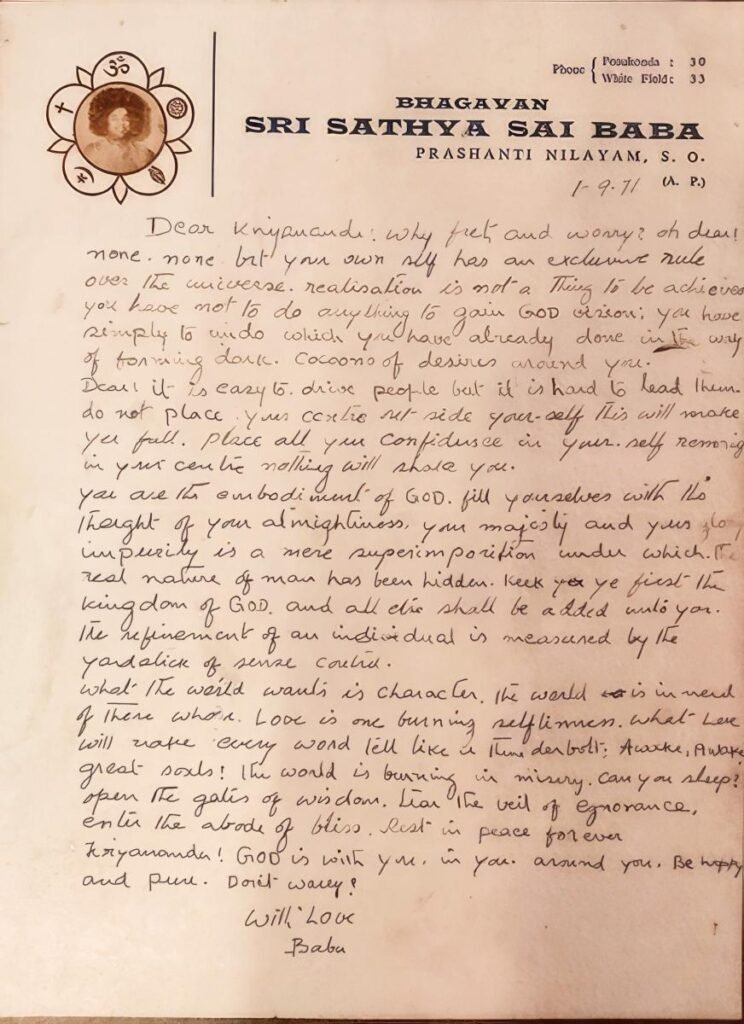 ॐ
Phone { Penukonda : 30
White Field : 33
BHAGAVAN
SRI SATHYA SAI BABA
PRASHANTI NILAYAM, S. O.
1-9.71 (A. P.)
Dear Kriyananda! Why fret and worry? oh dear!
none. none but your own self has an exclusive rule
over the universe. realisation is not a Thing to be achieved
you have not to do anything to gain GOD vision; you have
simply to undo which you have already done in the way
of forming dark. Cocoons of desires around you.
Dear! it is easy to. drive people but it is hard to lead them.
do not place your centre out side your-self This will make
you fall. Place all your Confidence in your.self
in your centre nothing will shake you.
you are the embodiment of GOD. fill yourselves with the
thought of your almightiness, your majesty and your glory
impurity is a mere superimposition under which. the
real nature of man has been hidden. Keek ye first the
kingdom of GOD. and all else shall be added unto you.
the refinement of an individual is measured by the
yardstick of sense control.
what the world wants is character. the world is in need
of those whose. Love is one burning selflessness. what Love
will make every word tell like a thunderbolt; Awake, Awake
great souls! the world is burning in misery. can you sleep?
open the gates of wisdom. tear the veil of egnorance,
enter the abode of bliss. Rest in peace for ever
Kriyananda! GOD is with you. in you. around you. Be happy
and pure. Don't worry!
With Love
Baba